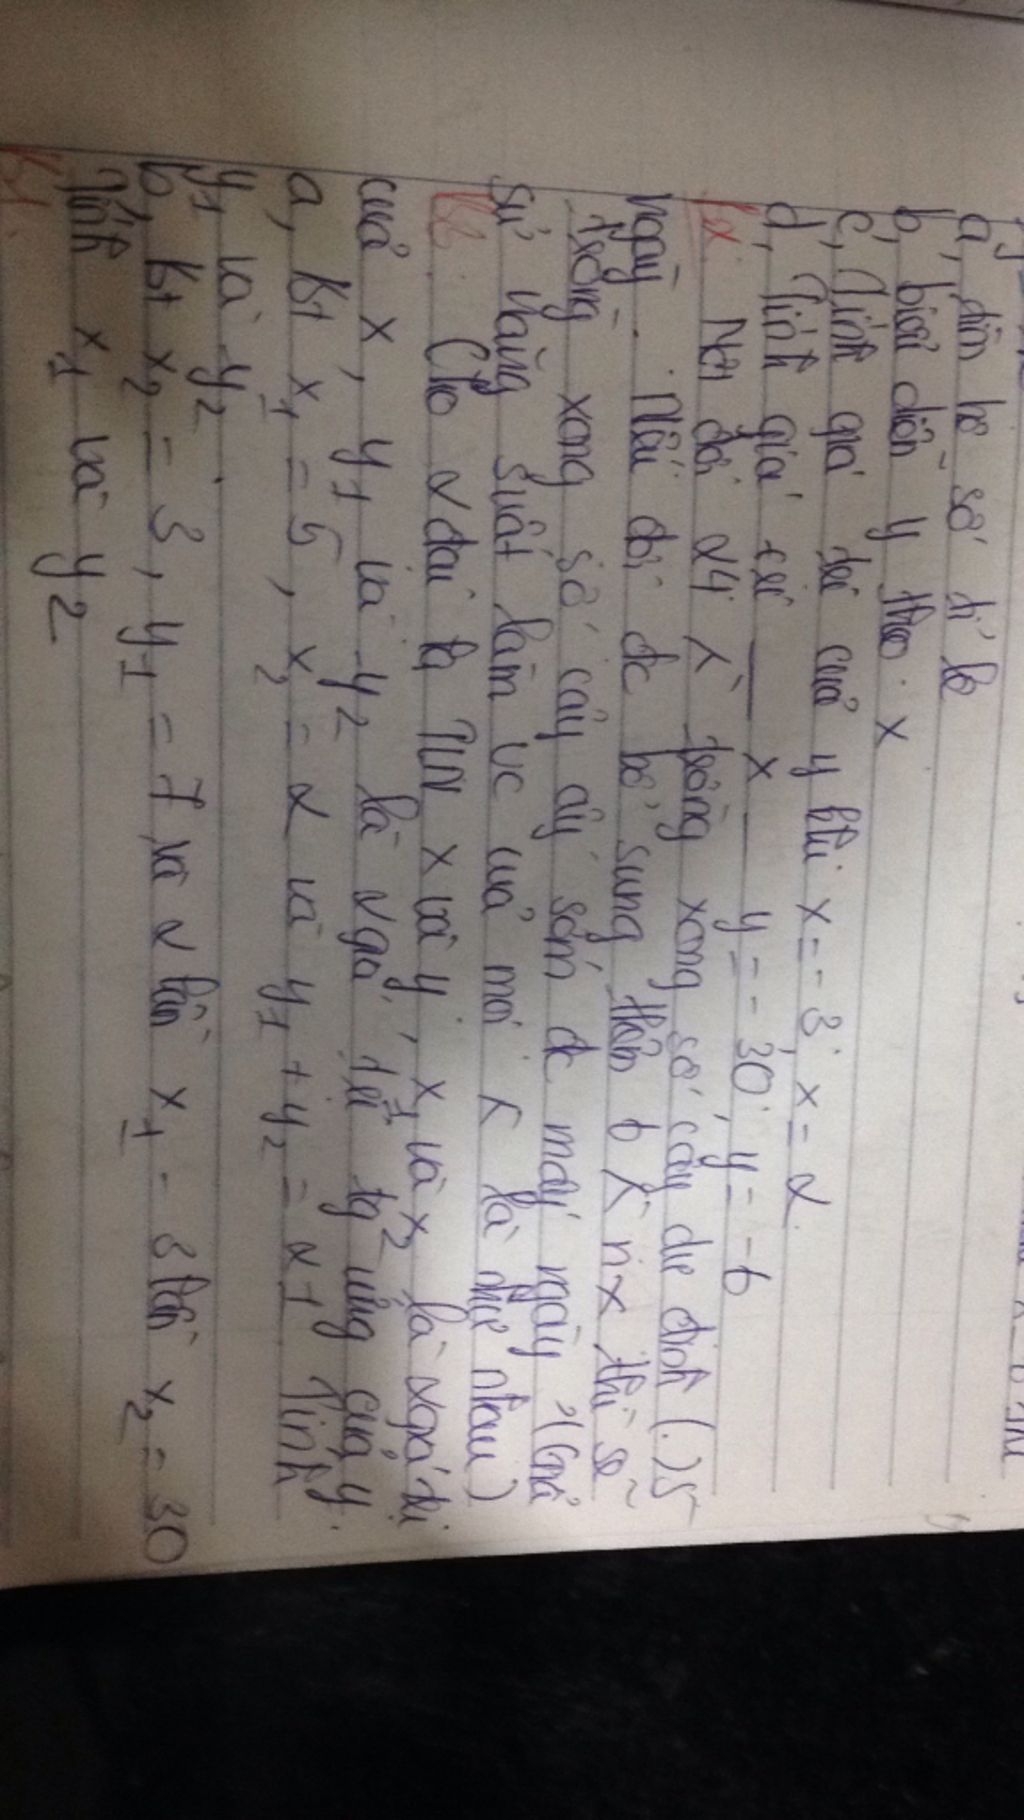 a, tìm hệ số tỉ lệ
b, biểu diễn y theo x
c, Tính giá trị của y khi x = -3, x = 2
d, Tính giá trị ___ x ___ y = -30, y = -6
Một đội 24 trồng xong số cây dự định (.) 5
ngày. Nếu đội đc bổ sung thêm 6 nx thì sẽ
trồng xong số cây ấy sớm đc mấy ngày? (Giả
sử năng suất làm vc của mỗi là như nhau)
Cho 2 đại lg TLN x và y, x1 và x2 là 2 giá trị
của x, y1 và y2 là 2 giá trị tg ứng của y.
a, bt x1 = 5, x2 = 2 và y1 + y2 = 21 Tính
y1 và y2
b, bt x2 = 3, y1 = 7 và 2 lần x1 - 3 lần x2 = 30
Tính x1 và y2